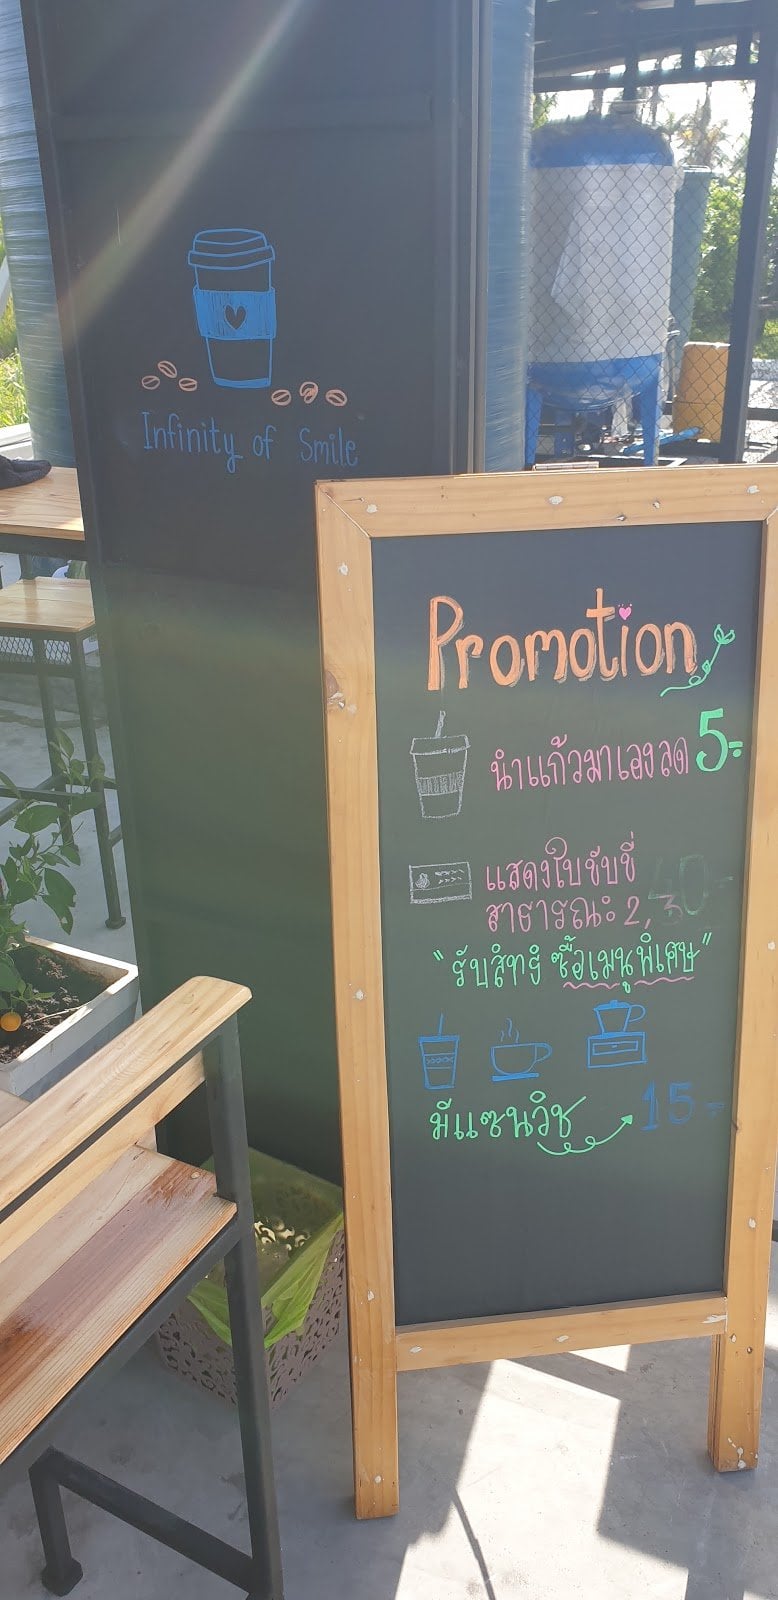 Infinity of Smile
Promotion
นำแก้วมาเองลด 5.-
แสดงใบขับขี่
สาธารณะ 2, 3
40.-
"รับสิทธิ์ ซื้อเมนูพิเศษ"
มีแซนวิช 15.-